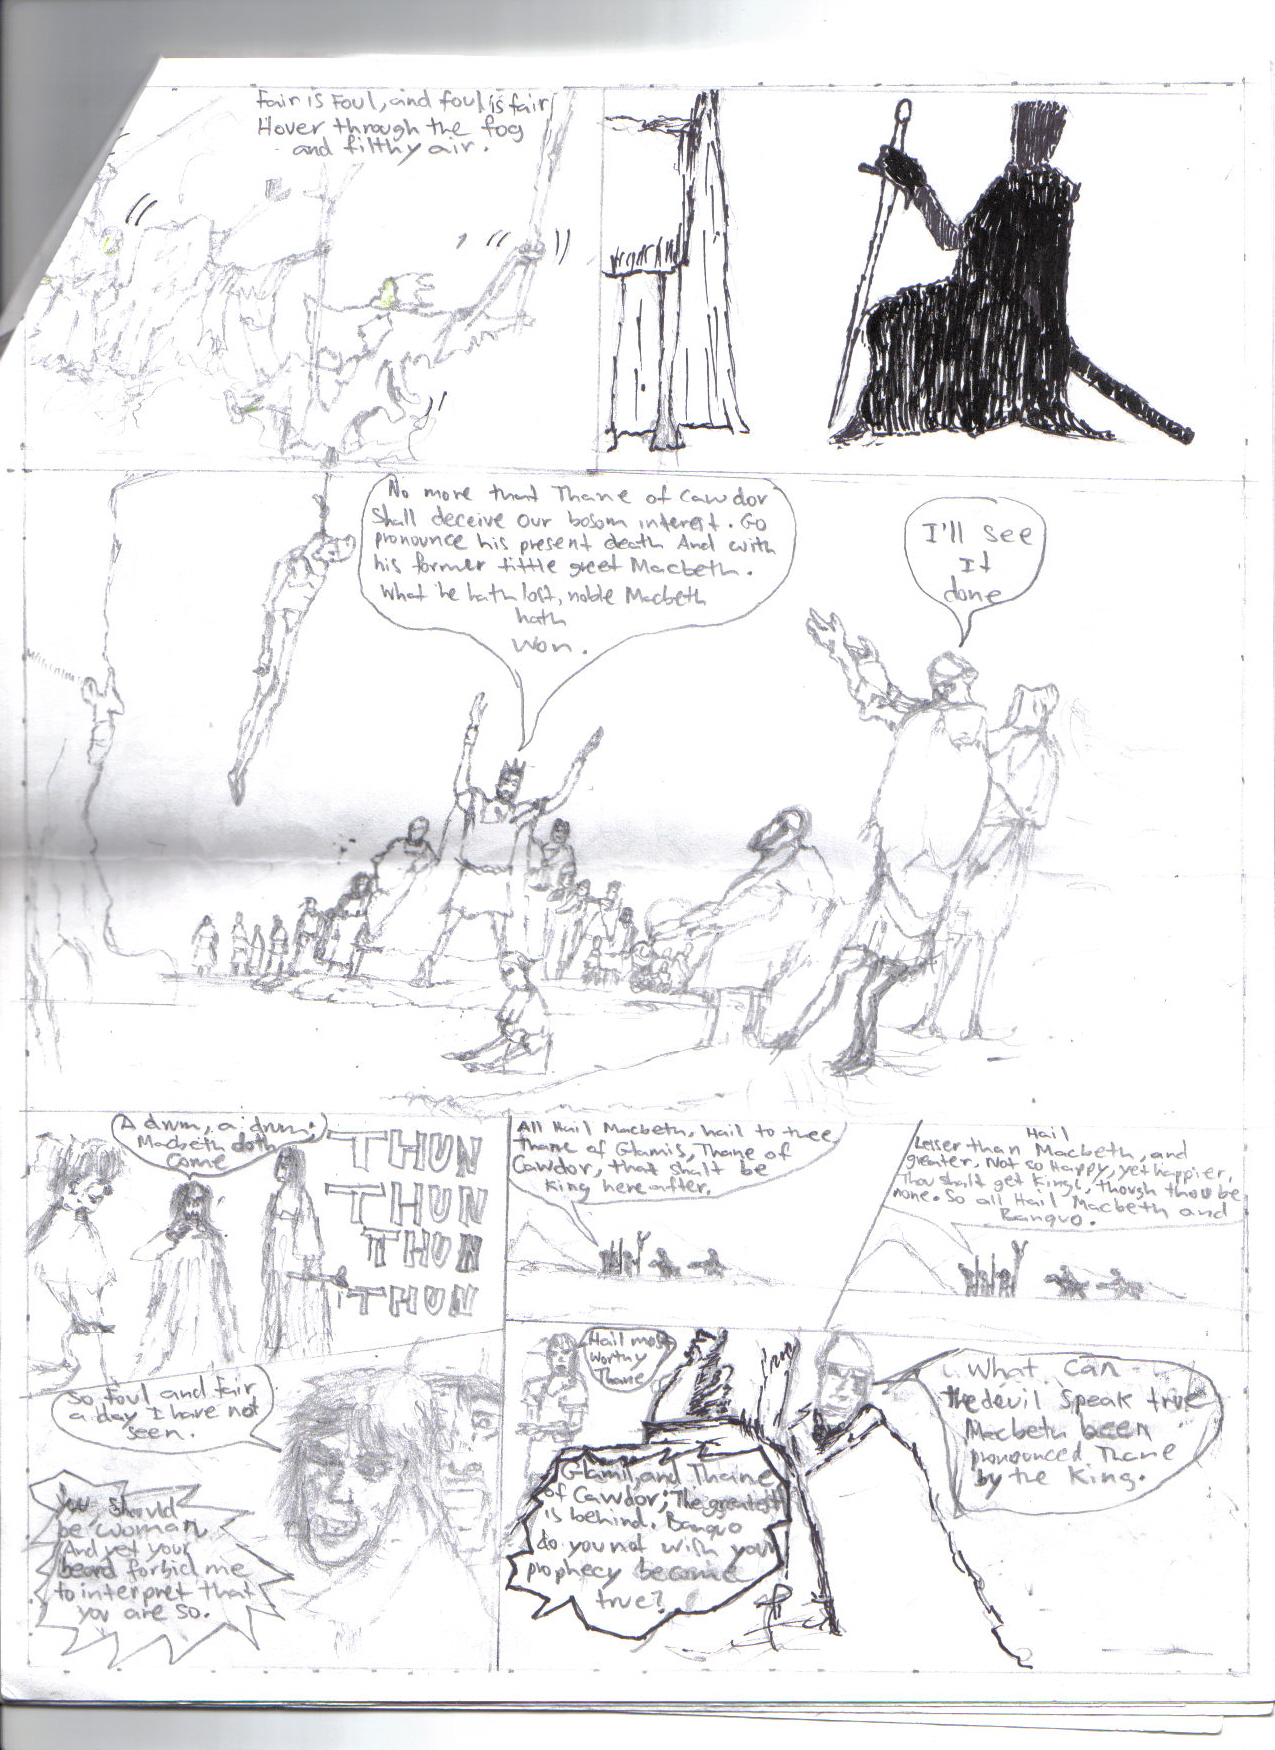 Fair is Foul, and foul is fair,
Hover through the fog
and filthy air.
No more that Thane of Cawdor
Shall deceive our bosom interest. Go
pronounce his present death And with
his former tittle greet Macbeth.
What he hath lost, noble Macbeth
hath
won.
I'll see
It
done
A drum, a drum;
Macbeth doth
Come
THUN
THUN
THUN
THUN
All Hail Macbeth, hail to thee
Thane of Glamis, Thane of
Cawdor, that shalt be
King hereafter.
Hail
Lesser than Macbeth, and
greater, Not so Happy, yet happier,
Thou shalt get Kings, though thou be
none. So all Hail Macbeth and
Banquo.
So foul and fair
a day I have not
seen.
You Should
be woman
And yet your
beard forbid me
to interpret that
you are so.
Hail most
Worthy
Thane
Glamis, and Thane
of Cawdor; The greatest
is behind. Banquo
do you not wish your
prophecy become
true?
What can
the devil speak true
Macbeth been
pronounced Thane
by the King.